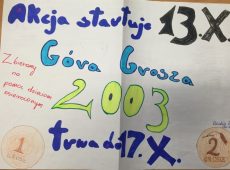 Akcja startuje 13.X.
Góra Grosza
Zbieramy na pomoc dzieciom
2003
trwa do 17.X.
1
2